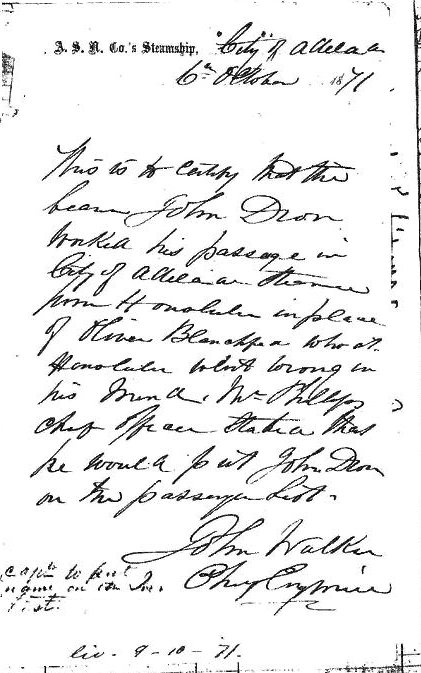 A. S. N. Co.'s Steamship, "City of Adelaide
6th October 1871
This is to certify that the
bearer John Dron
worked his passage in
City of Adelaide Steamer
from Honolulu in place
of Oliver who at
Honolulu went wrong in
his mind. Mr Phillips
chief officer stated that
he would put John Dron
on the passenger list.
John Walker
Chief Engineer
Captn to put
name on the
list.
9-10-71.